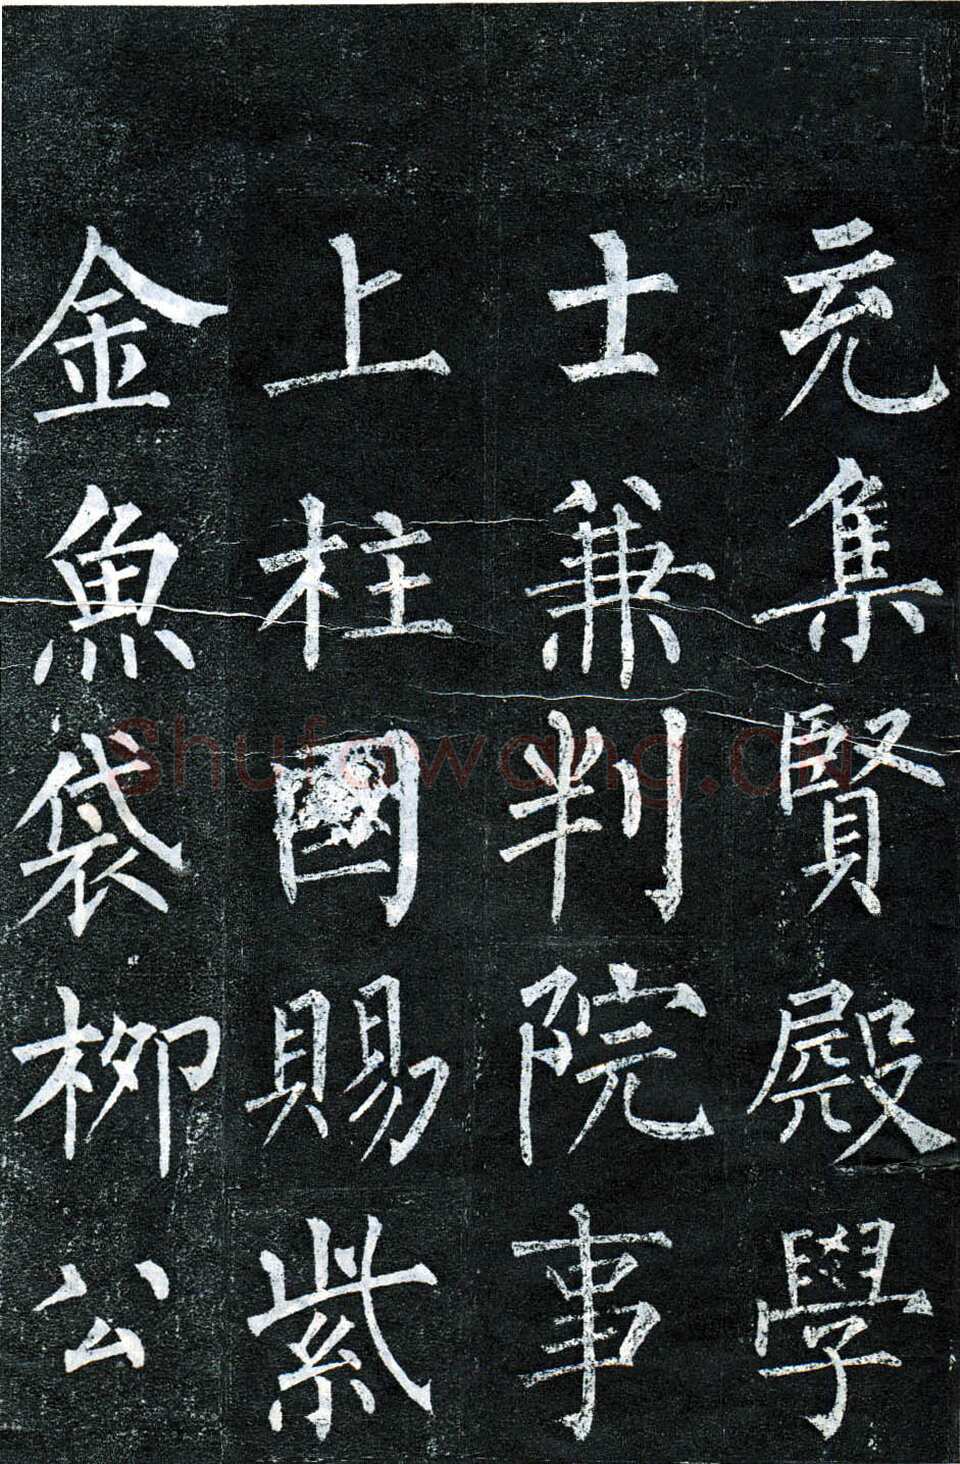 充集賢殿學
士兼判院事
上柱國賜紫
金魚袋柳公
Shufawang.CN